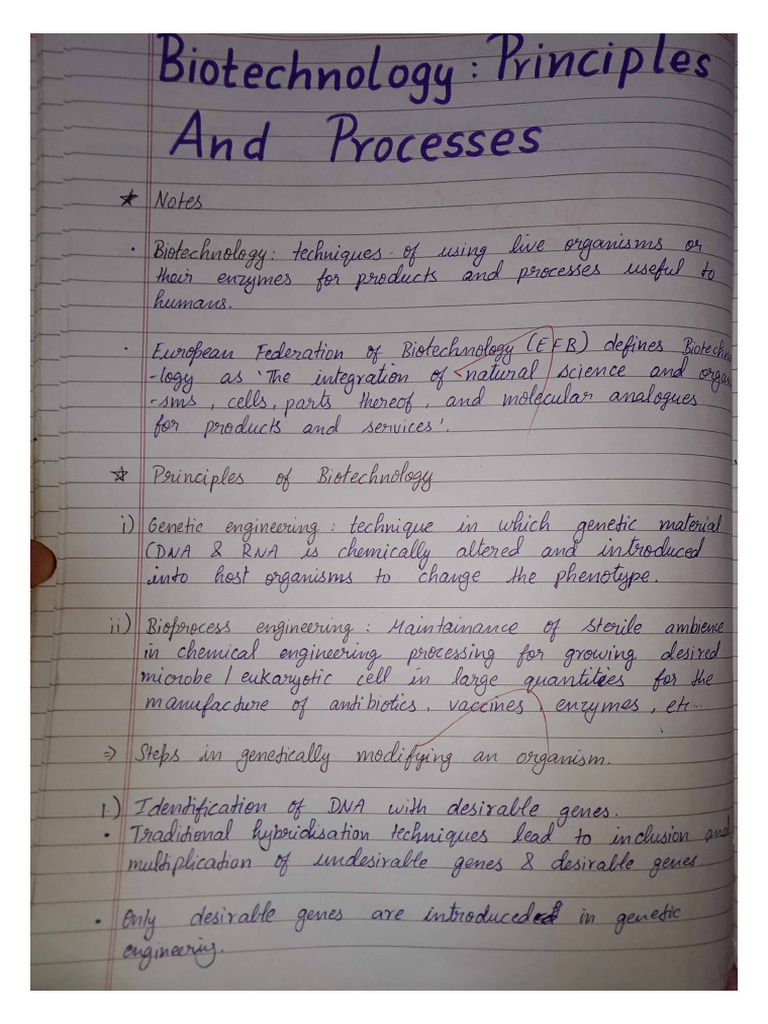 Biotechnology : Principles
And Processes
★ Notes
• Biotechnology : techniques of using live organisms or
their enzymes for products and processes useful to
humans.
• European Federation of Biotechnology (EFB) defines Biotechno
-logy as 'The integration of natural science and organi
-sms, cells, parts thereof, and molecular analogues
for products and services'.
☆ Principles of Biotechnology
i) Genetic engineering : technique in which genetic material
(DNA & RNA is chemically altered and introduced
into host organisms to change the phenotype.
ii) Bioprocess engineering : Maintainance of sterile ambience
in chemical engineering processing for growing desired
microbe / eukaryotic cell in large quantities for the
manufacture of antibiotics, vaccines, enzymes, etc...
⇒ Steps in genetically modifying an organism.
1.) Identification of DNA with desirable genes.
• Traditional hybridisation techniques lead to inclusion and
multiplication of undesirable genes & desirable genes.
• Only desirable genes are introduced in genetic
engineering.